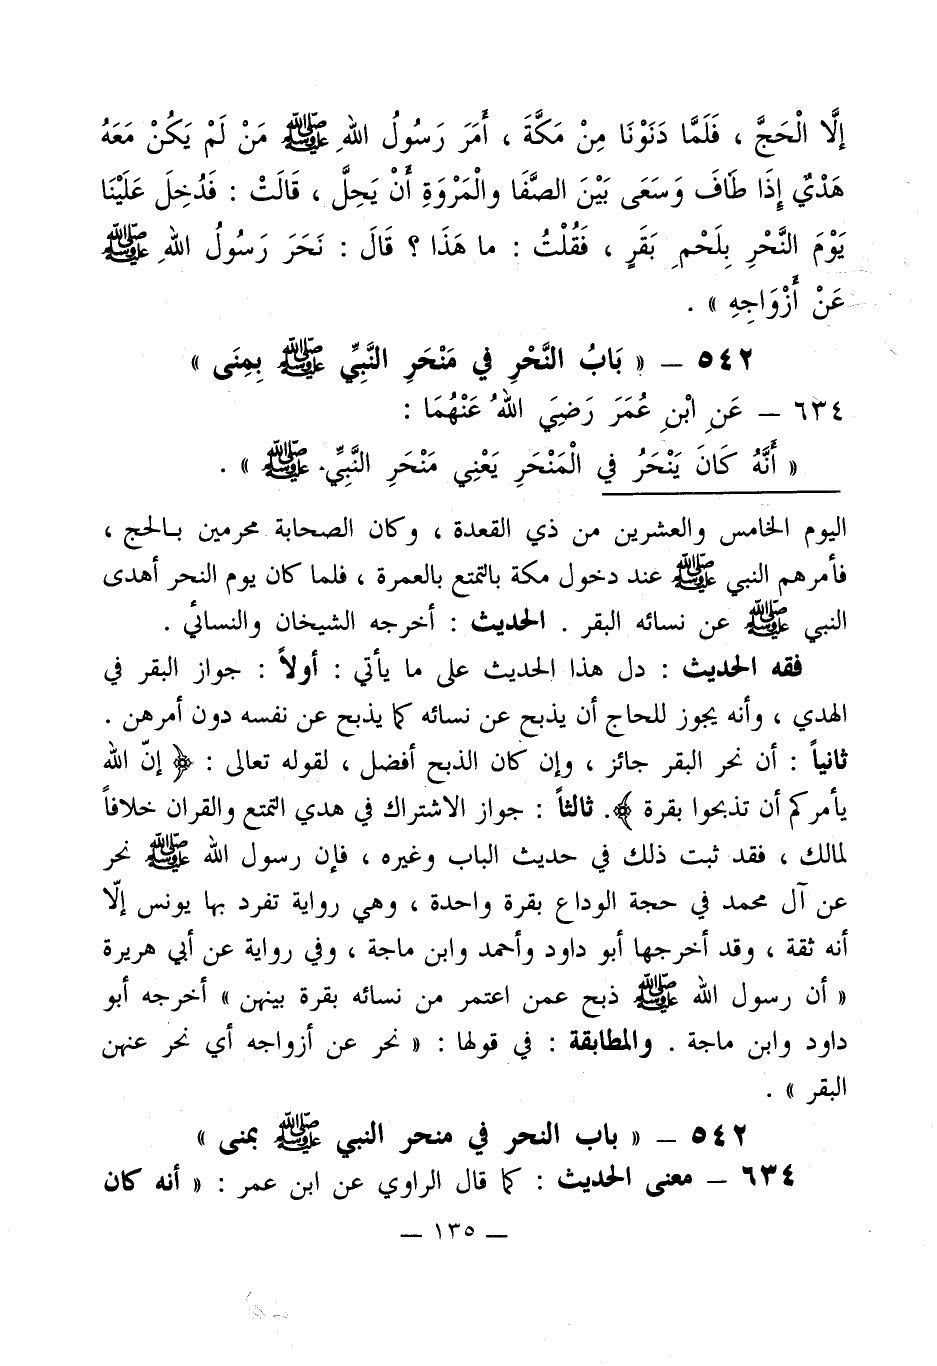 إلَّا الْحَجَّ ، فَلَمَّا دَنَوْنَا مِنْ مَكَّةَ ، أَمَرَ رَسُولُ اللهِ ﷺ مَنْ لَمْ يَكُنْ مَعَهُ
هَدْيٌ إِذَا طَافَ وَسَعَى بَيْنَ الصَّفَا والْمَرْوَةِ أَنْ يَحِلَّ ، قَالَتْ : فَدُخِلَ عَلَيْنَا
يَوْمَ النَّحْرِ بِلَحْمِ بَقَرٍ ، فَقُلْتُ : ما هَذَا ؟ قَالَ : نَحَرَ رَسُولُ اللهِ ﷺ
عَنْ أَزْوَاجِهِ » .
٥٤٢ – « بَابُ النَّحْرِ في مَنْحَرِ النَّبِيِّ ﷺ بِمِنَى »
٦٣٤ – عَنِ ابْنِ عُمَرَ رَضِيَ اللهُ عَنْهُمَا :
« أَنَّهُ كَانَ يَنْحَرُ في الْمَنْحَرِ يَعْنِي مَنْحَرِ النَّبِيِّ ﷺ » .
اليوم الخامس والعشرين من ذي القعدة ، وكان الصحابة محرمين بالحج ،
فأمرهم النبي ﷺ عند دخول مكة بالتمتع بالعمرة ، فلما كان يوم النحر أهدى
النبي ﷺ عن نسائه البقر . الحديث : أخرجه الشيخان والنسائي .
فقه الحديث : دل هذا الحديث على ما يأتي : أولاً : جواز البقر في
الهدي ، وأنه يجوز للحاج أن يذبح عن نسائه كما يذبح عن نفسه دون أمرهن .
ثانياً : أن نحر البقر جائز ، وإن كان الذبح أفضل ، لقوله تعالى : ﴿ إنّ الله
يأمركم أن تذبحوا بقرة ﴾. ثالثاً : جواز الاشتراك في هدي التمتع والقران خلافاً
لمالك ، فقد ثبت ذلك في حديث الباب وغيره ، فإن رسول الله ﷺ نحر
عن آل محمد في حجة الوداع بقرة واحدة ، وهي رواية تفرد بها يونس إلّا
أنه ثقة ، وقد أخرجها أبو داود وأحمد وابن ماجة ، وفي رواية عن أبي هريرة
« أن رسول الله ﷺ ذبح عمن اعتمر من نسائه بقرة بينهن » أخرجه أبو
داود وابن ماجة . والمطابقة : في قولها : « نحر عن أزواجه أي نحر عنهن
البقر » .
٥٤٢ – « باب النحر في منحر النبي ﷺ بمنى »
٦٣٤ – معنى الحديث : كما قال الراوي عن ابن عمر : « أنه كان
– ١٣٥ –